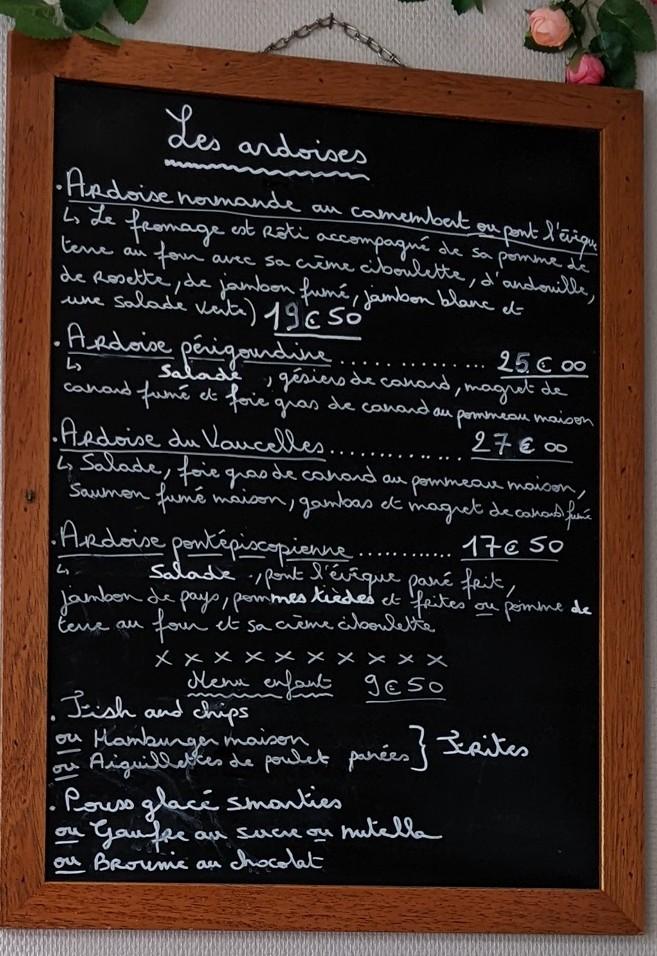 Les ardoises
. Ardoise normande au camembert ou pont l'évêque
↳ Le fromage est rôti accompagné de sa pomme de
terre au four avec sa crème ciboulette, d'andouille,
de rosette, de jambon fumé, jambon blanc et
une salade verte) 19€50
. Ardoise périgourdine ............... 25€00
↳ Salade, gésiers de canard, magret de
canard fumé et foie gras de canard au pommeau maison
. Ardoise du Vaucelles ............... 27€00
↳ Salade, foie gras de canard au pommeau maison,
Saumon fumé maison, gambas et magret de canard fumé
. Ardoise pontépiscopienne ............ 17€50
↳ Salade, pont l'évêque pané frit,
jambon de pays, pommes tièdes et frites ou pomme de
terre au four et sa crème ciboulette
x x x x x x x x x x
Menu enfant 9€50
. Fish and chips
ou Hamburger maison
ou Aiguillettes de poulet panées } Frites
. Pouss glacé smarties
ou Gaufre au sucre ou nutella
ou Brownie au chocolat